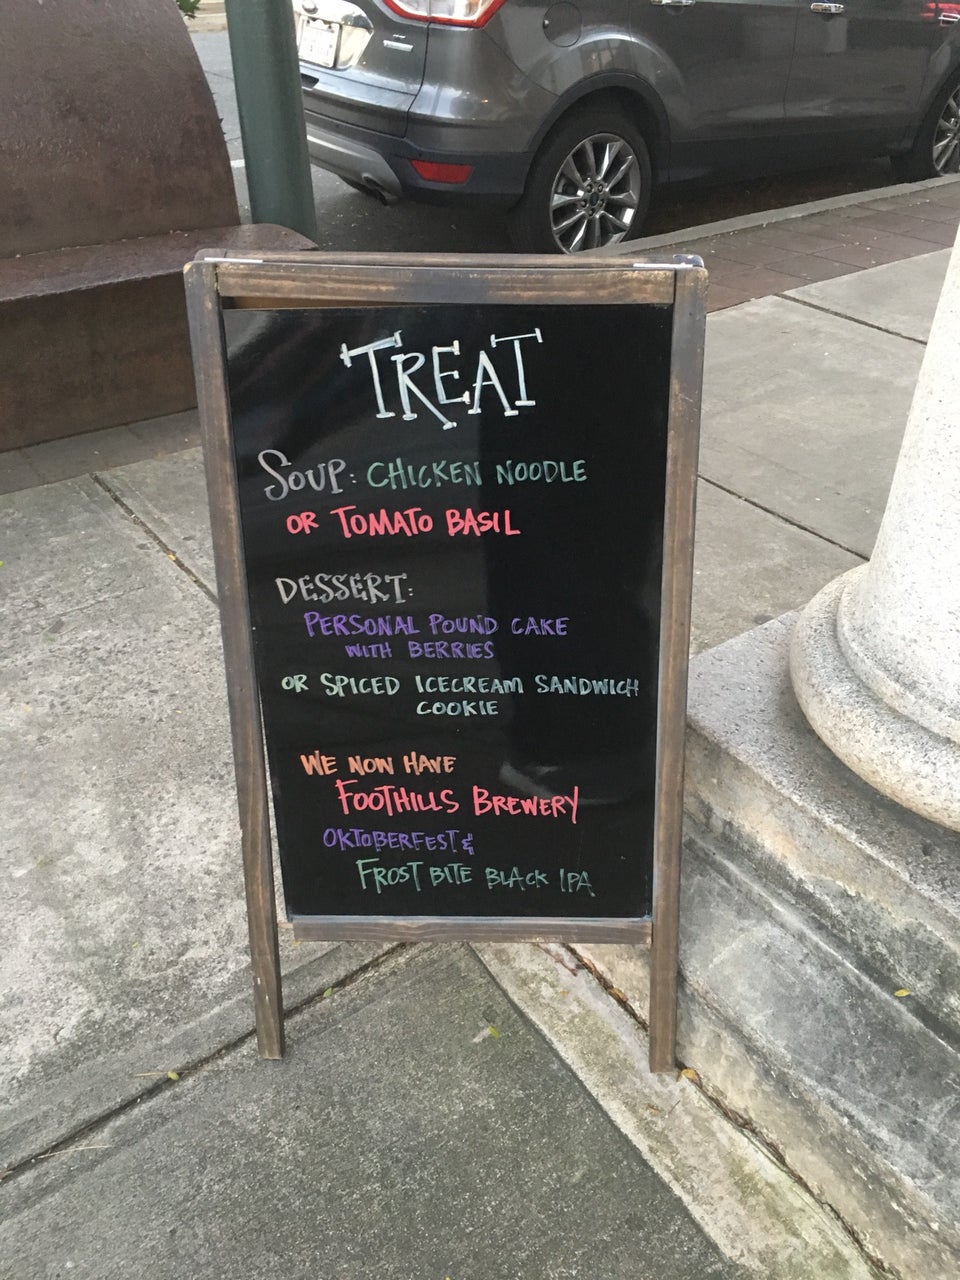 TREAT
SOUP: CHICKEN NOODLE
OR TOMATO BASIL
DESSERT:
PERSONAL POUND CAKE
WITH BERRIES
OR SPICED ICECREAM SANDWICH
COOKIE
WE NOW HAVE
FOOTHILLS BREWERY
OKTOBERFEST &
FROST BITE BLACK IPA